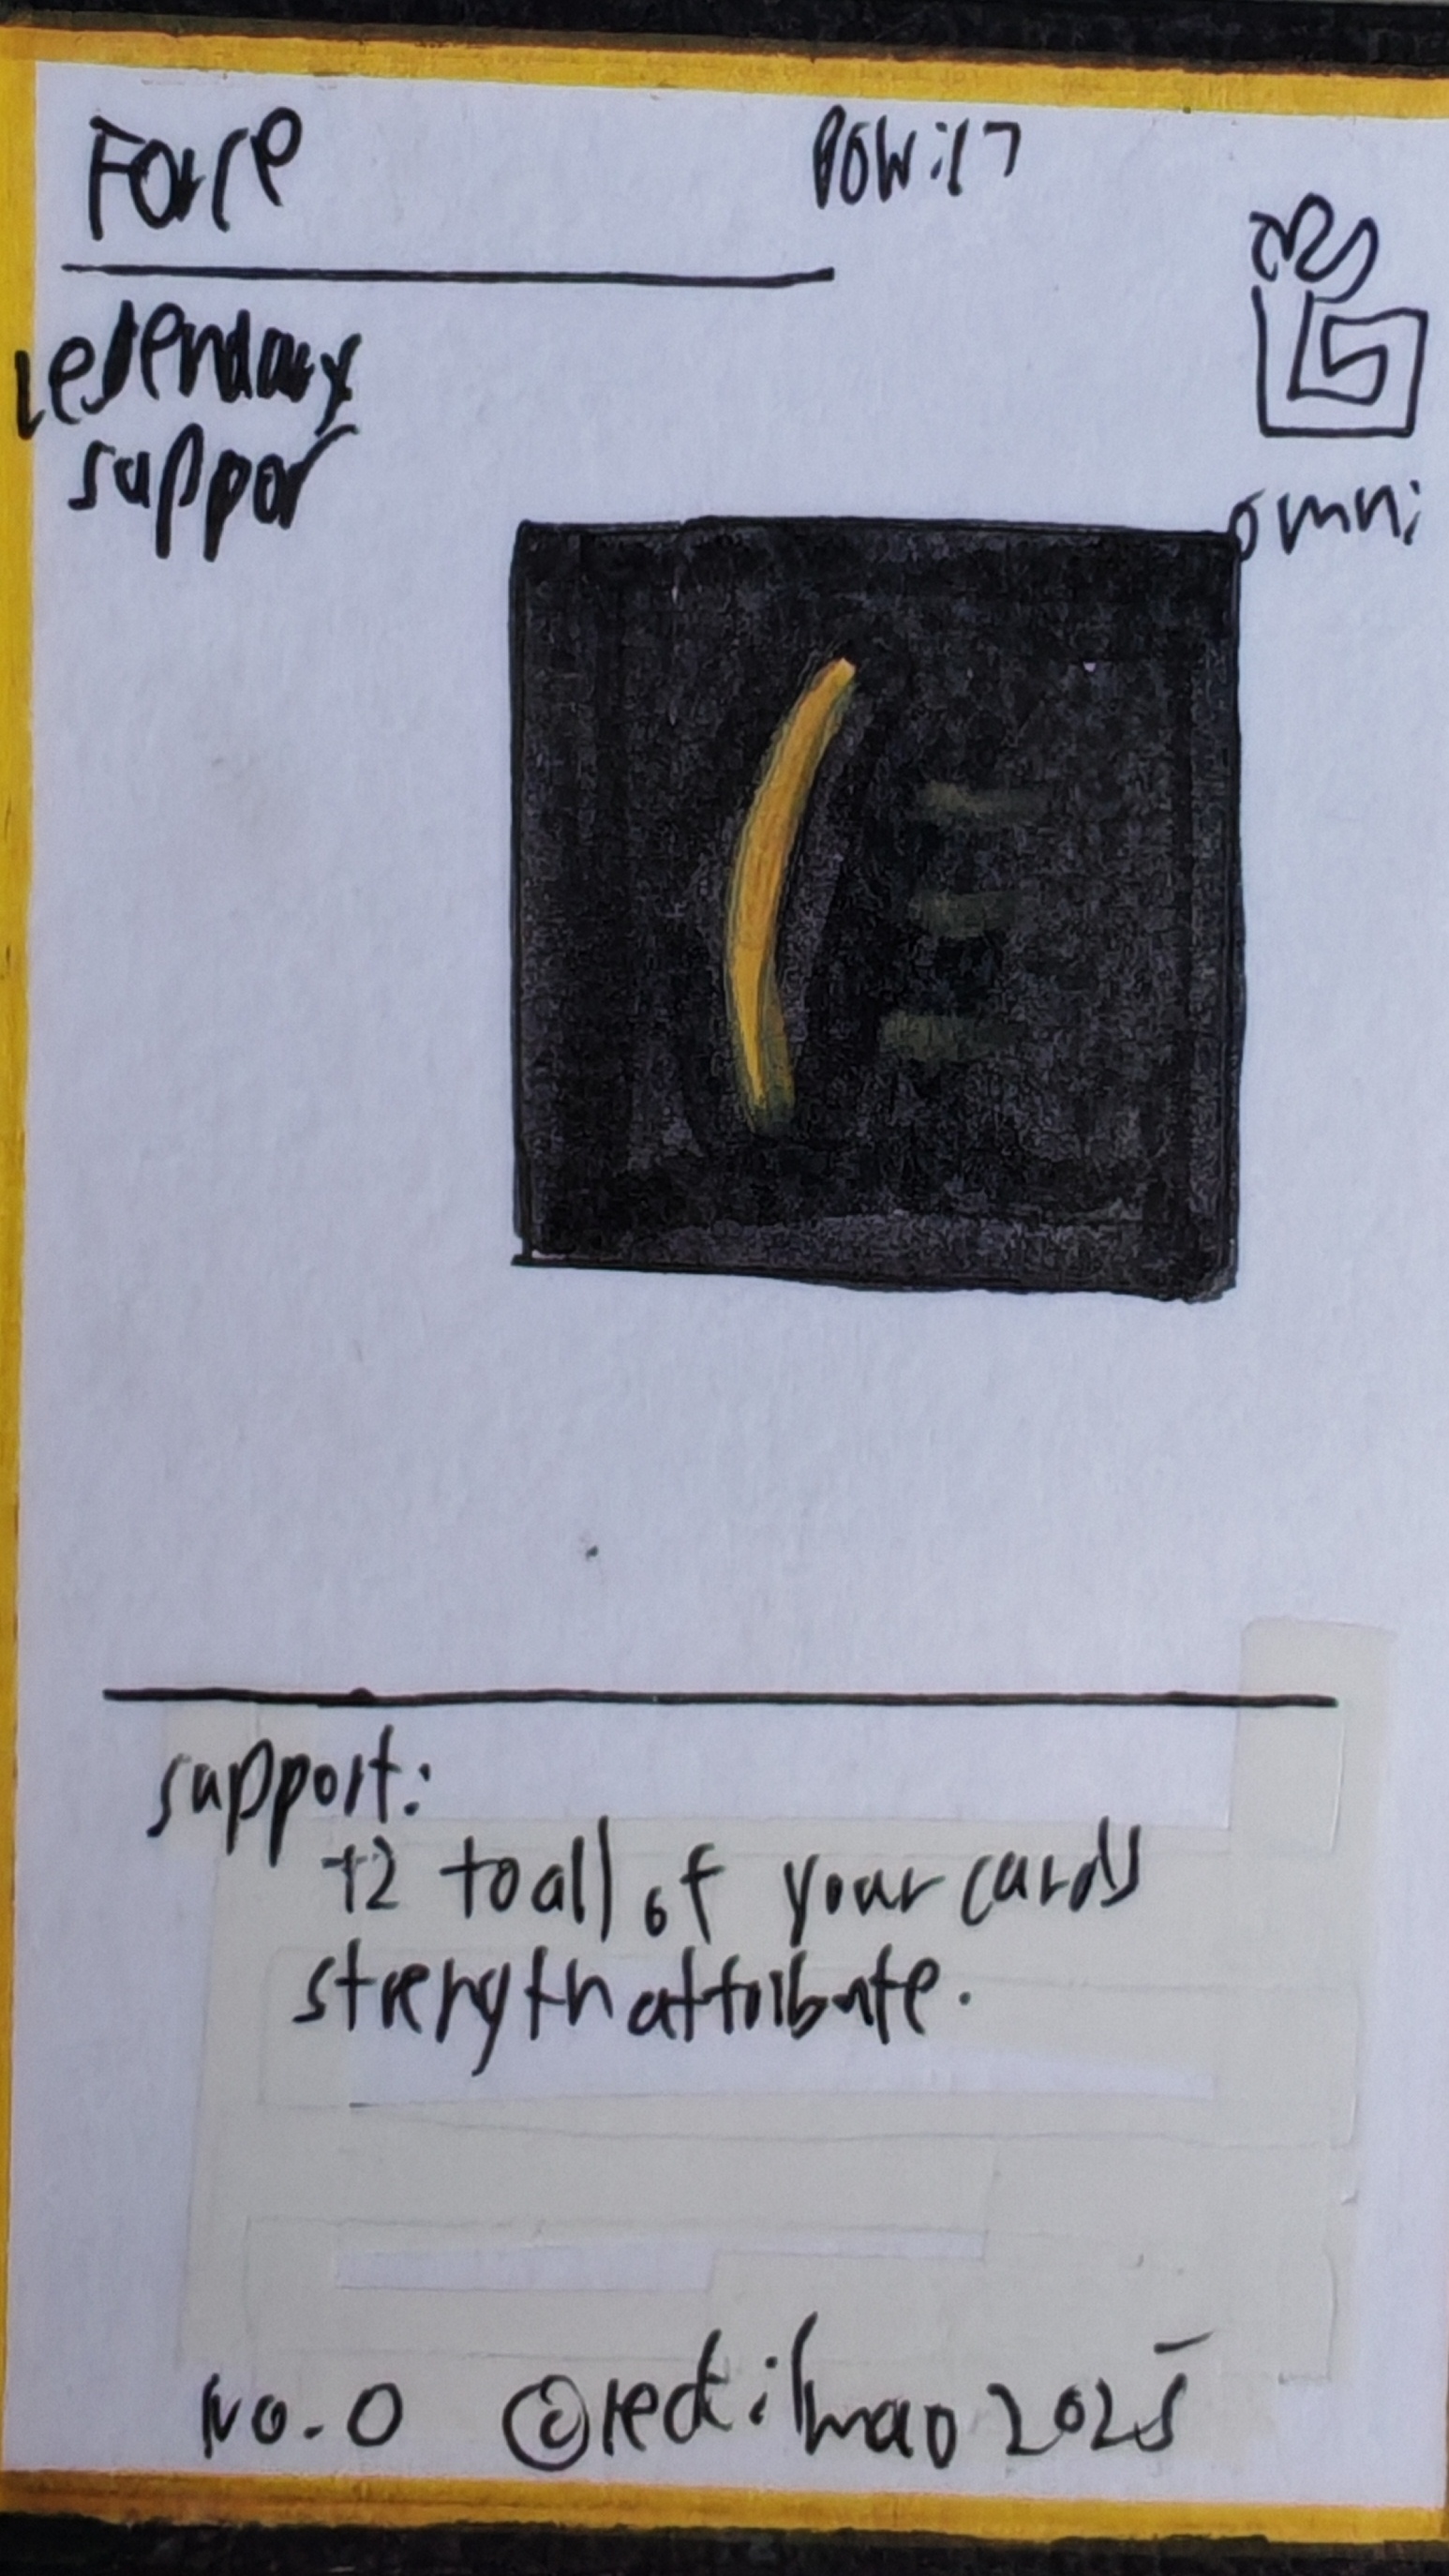 Force
POW:17
Legendary
suppor
omni
support:
+2 to all of your cards
strength attribute.
No. 0 © 2025